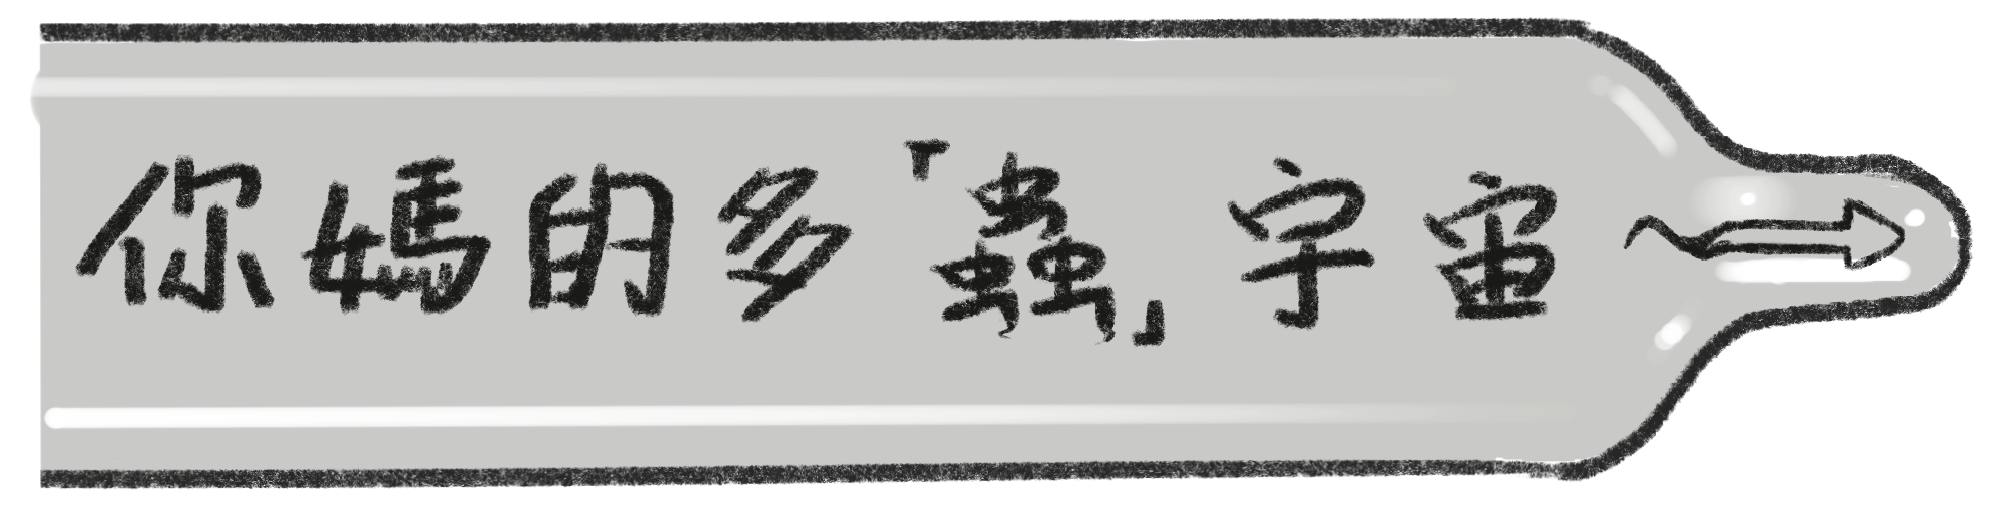 你媽的多「蟲」宇宙